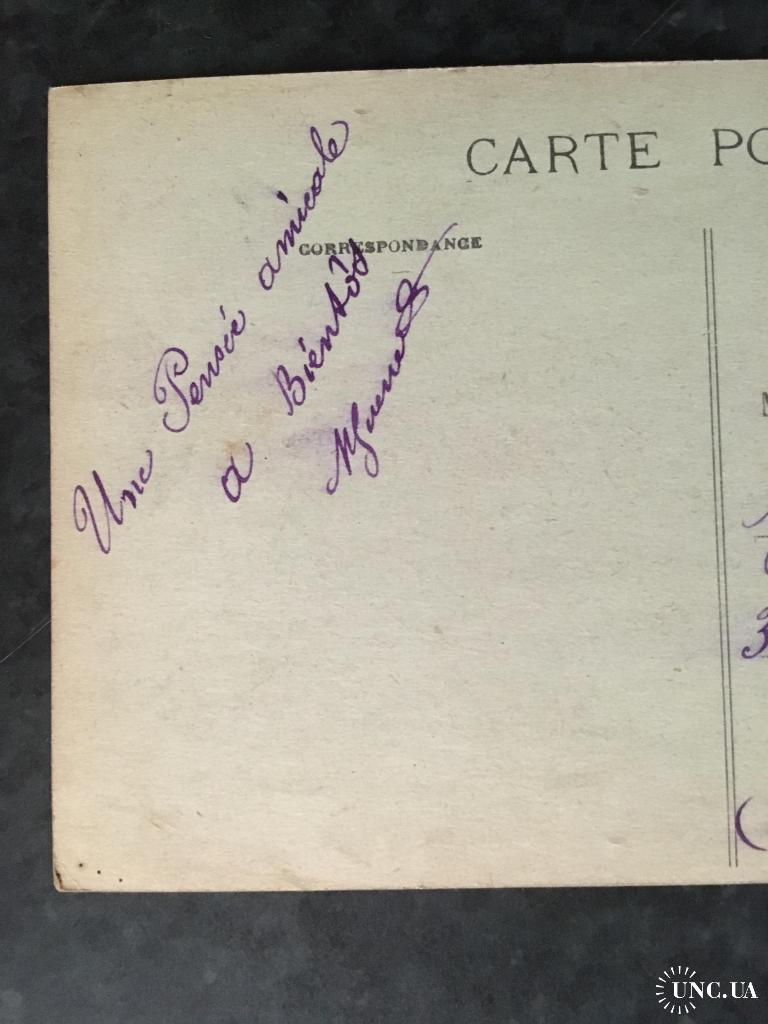 CARTE PO
CORRESPONDANCE
Une Pensée amicale
a Bientôt
UNC.UA